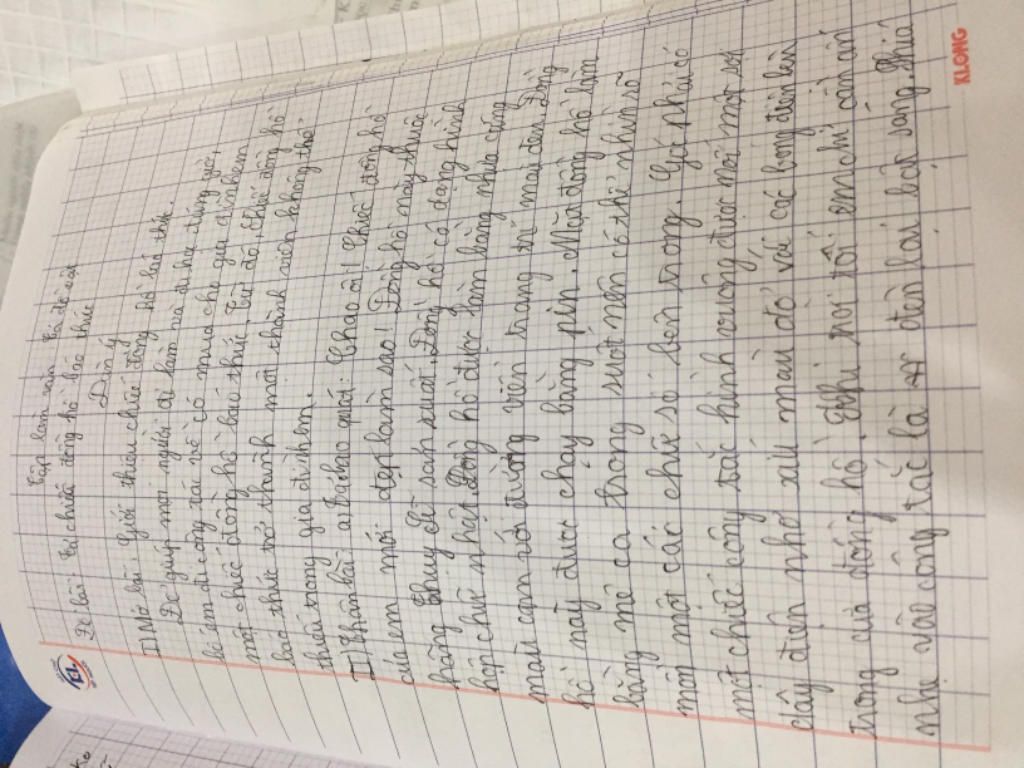 Tập làm văn: Tả đồ vật
Đề bài: Tả chiếc đồng hồ báo thức
Dàn ý
I) Mở bài: Giới thiệu chiếc đồng hồ báo thức.
Để giúp mọi người đi làm và đi học đúng giờ,
bố em đi công tác về có mua cho gia đình em
một chiếc đồng hồ báo thức. Từ đó, chiếc đồng hồ
báo thức trở thành một thành viên không thể
thiếu trong gia đình em.
II) Thân bài: a) Tả bao quát: Chao ôi! Chiếc đồng hồ
của em mới đẹp làm sao! Đồng hồ này thuộc
hãng Thụy Sĩ sản xuất. Đồng hồ có dạng hình
hộp chữ nhật. Đồng hồ được làm bằng nhựa cứng
màu cam với đường viền trang trí màu đen. Đồng
hồ này được chạy bằng pin. Mặt đồng hồ làm
bằng mê ca trong suốt nên có thể nhìn rõ
mồn một các chữ số bên trong. Góc phải có
một chiếc công tắc hình vuông được nối một sợi
dây điện nhỏ xíu màu đỏ với các bóng điện bên
trong của đồng hồ. Khi trời tối em chỉ cần ấn
nhẹ vào công tắc là đèn lại bật sáng. Phía
KLONG